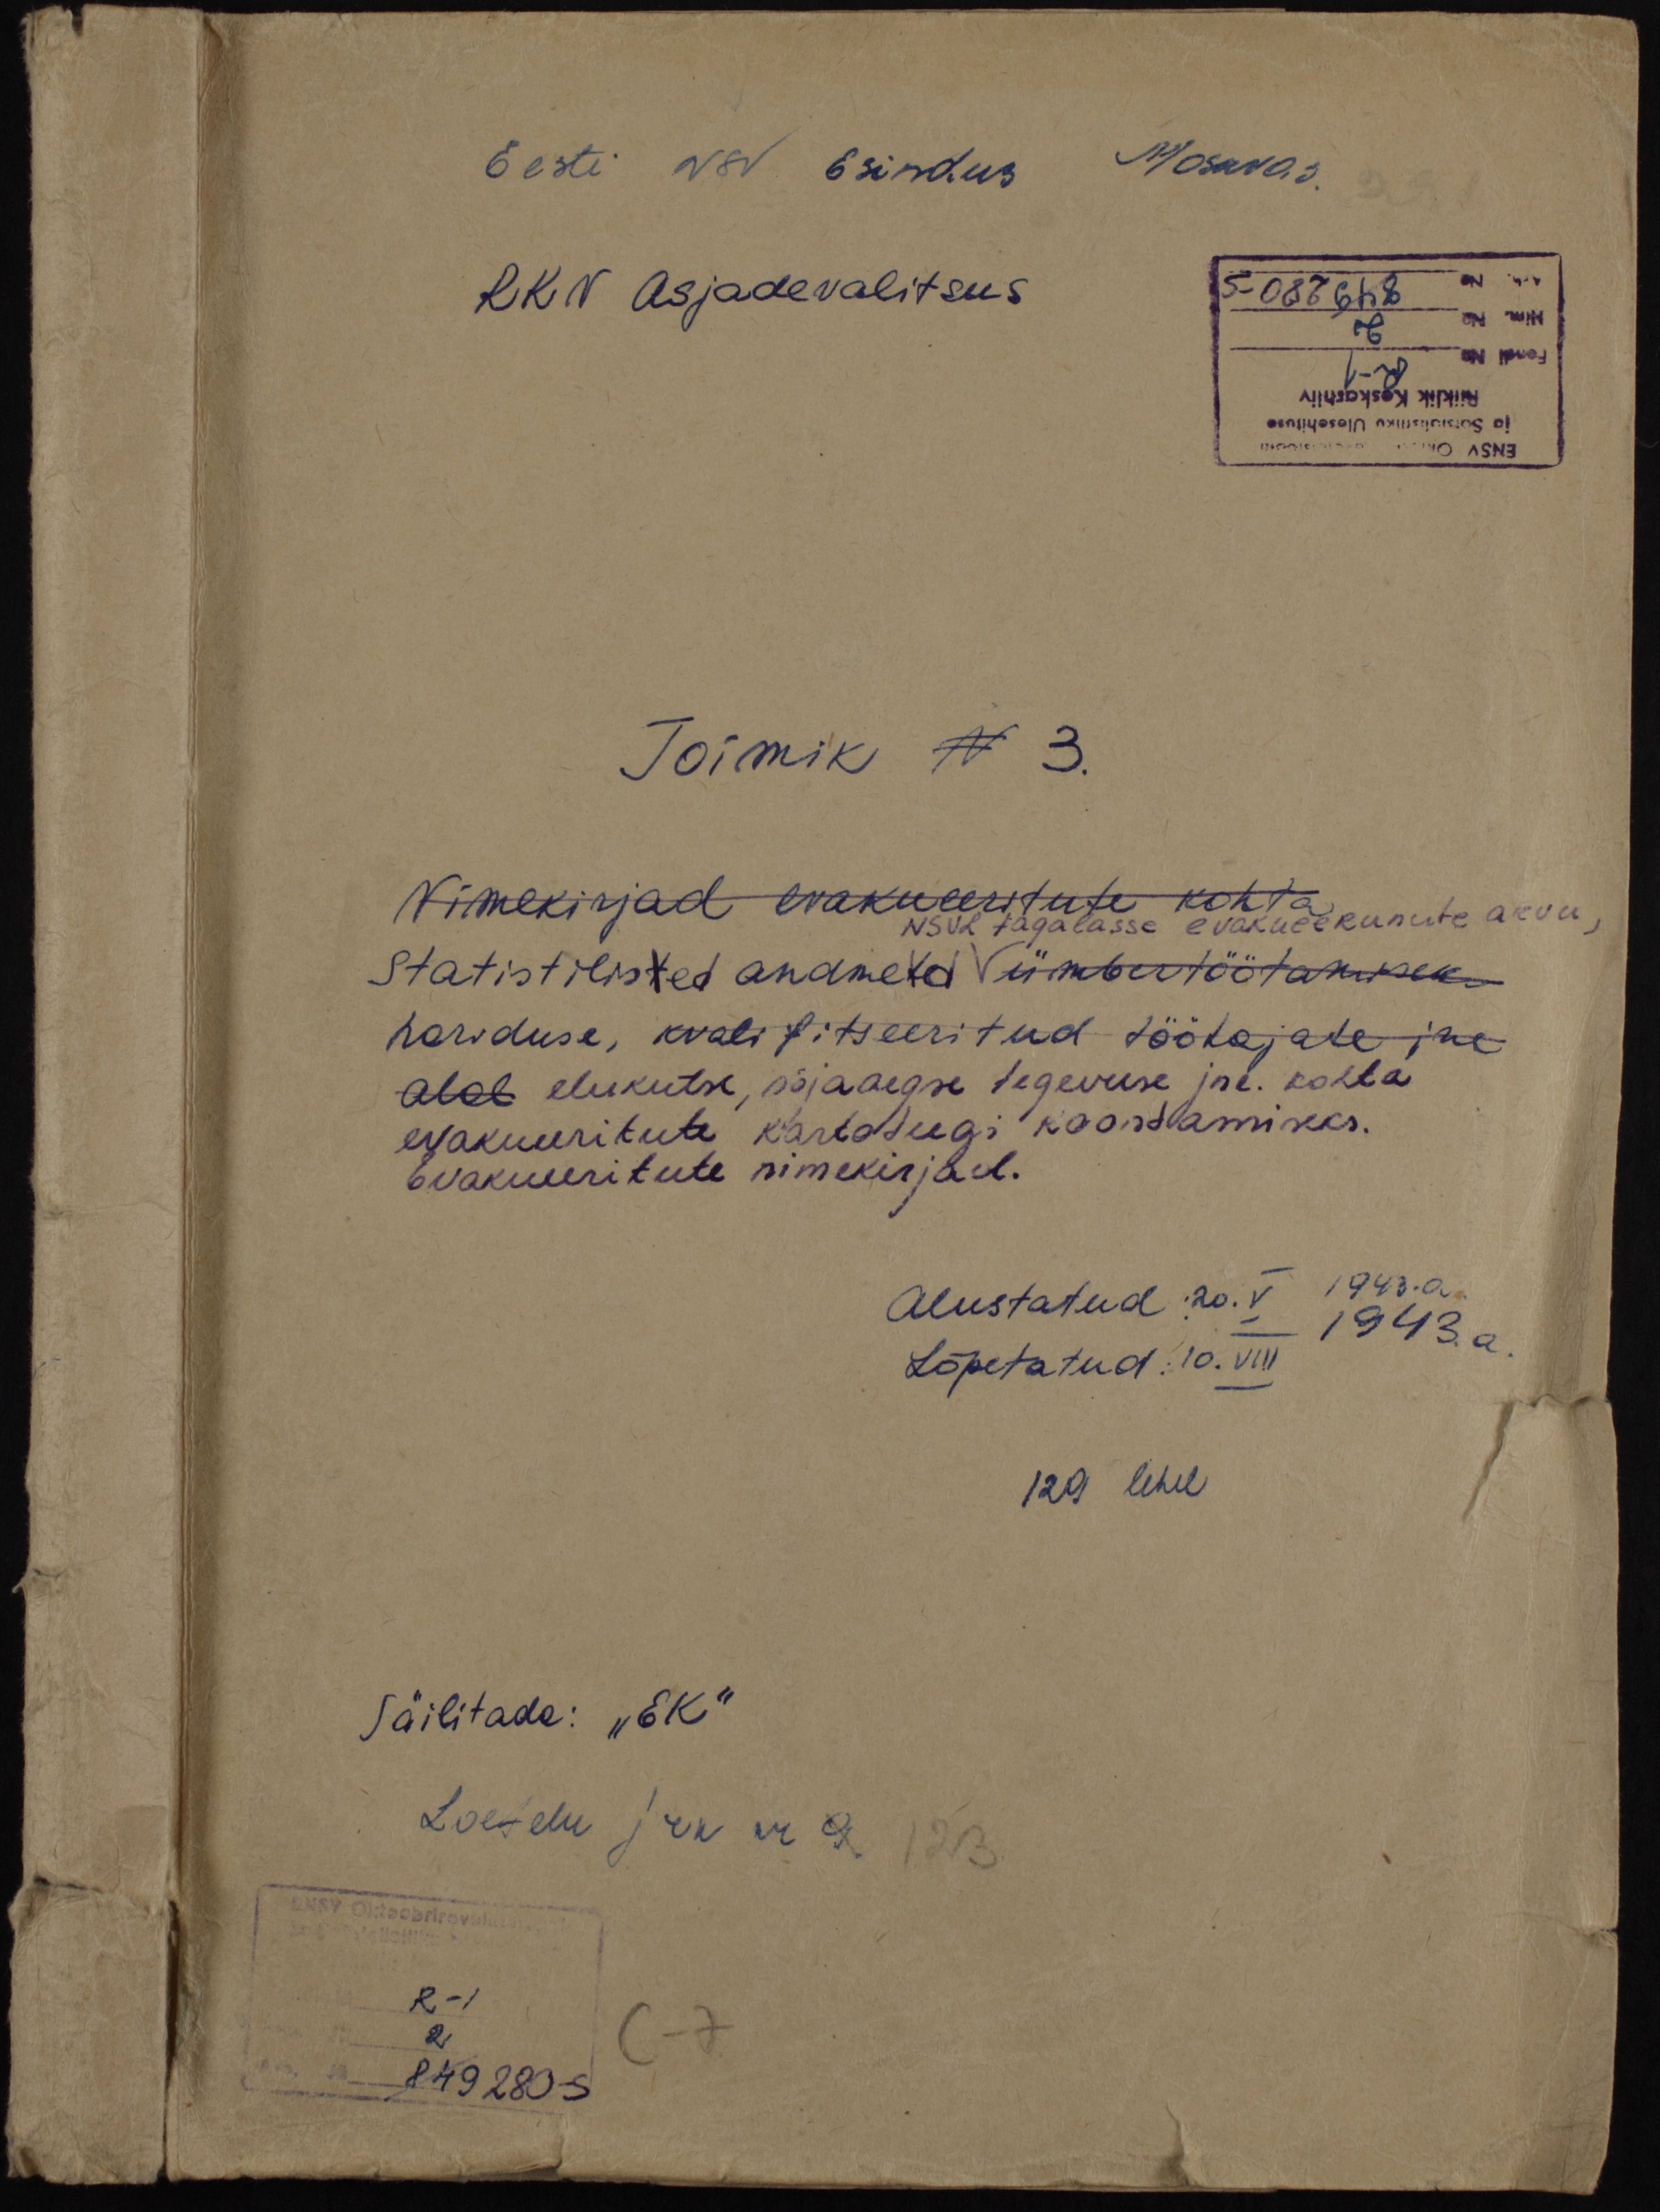 Eesti NSV Esindus Moskvas.
RKN Asjadevalitsus
ENSV
ja Sotsialistliku Ülesehituse
Riiklik Keskarhiiv
Fondi No R-1
Nim. No 2
No 849280-S
Toimik N 3.
Nimekirjad evakueeritute kohta
NSVL tagalasse evakueerunute arvu,
Statistilised andmed ümbertöötamisek
hariduse, kvalifitseeritud töötajate jne
alal elukutse, sõjaaegse tegevuse jne. kohta
evakueeritute kartoteegi koostamiseks.
Evakueeritute nimekirjad.
Alustatud: 20. V 1943.a.
1943.a.
Lõpetatud: 10. VIII
129 lehel
Säilitada: "EK"
Loetelu jrk nr 2 123
ENSV Oktoobrirevolutsiooni
R-1
2
849280-S
C-7